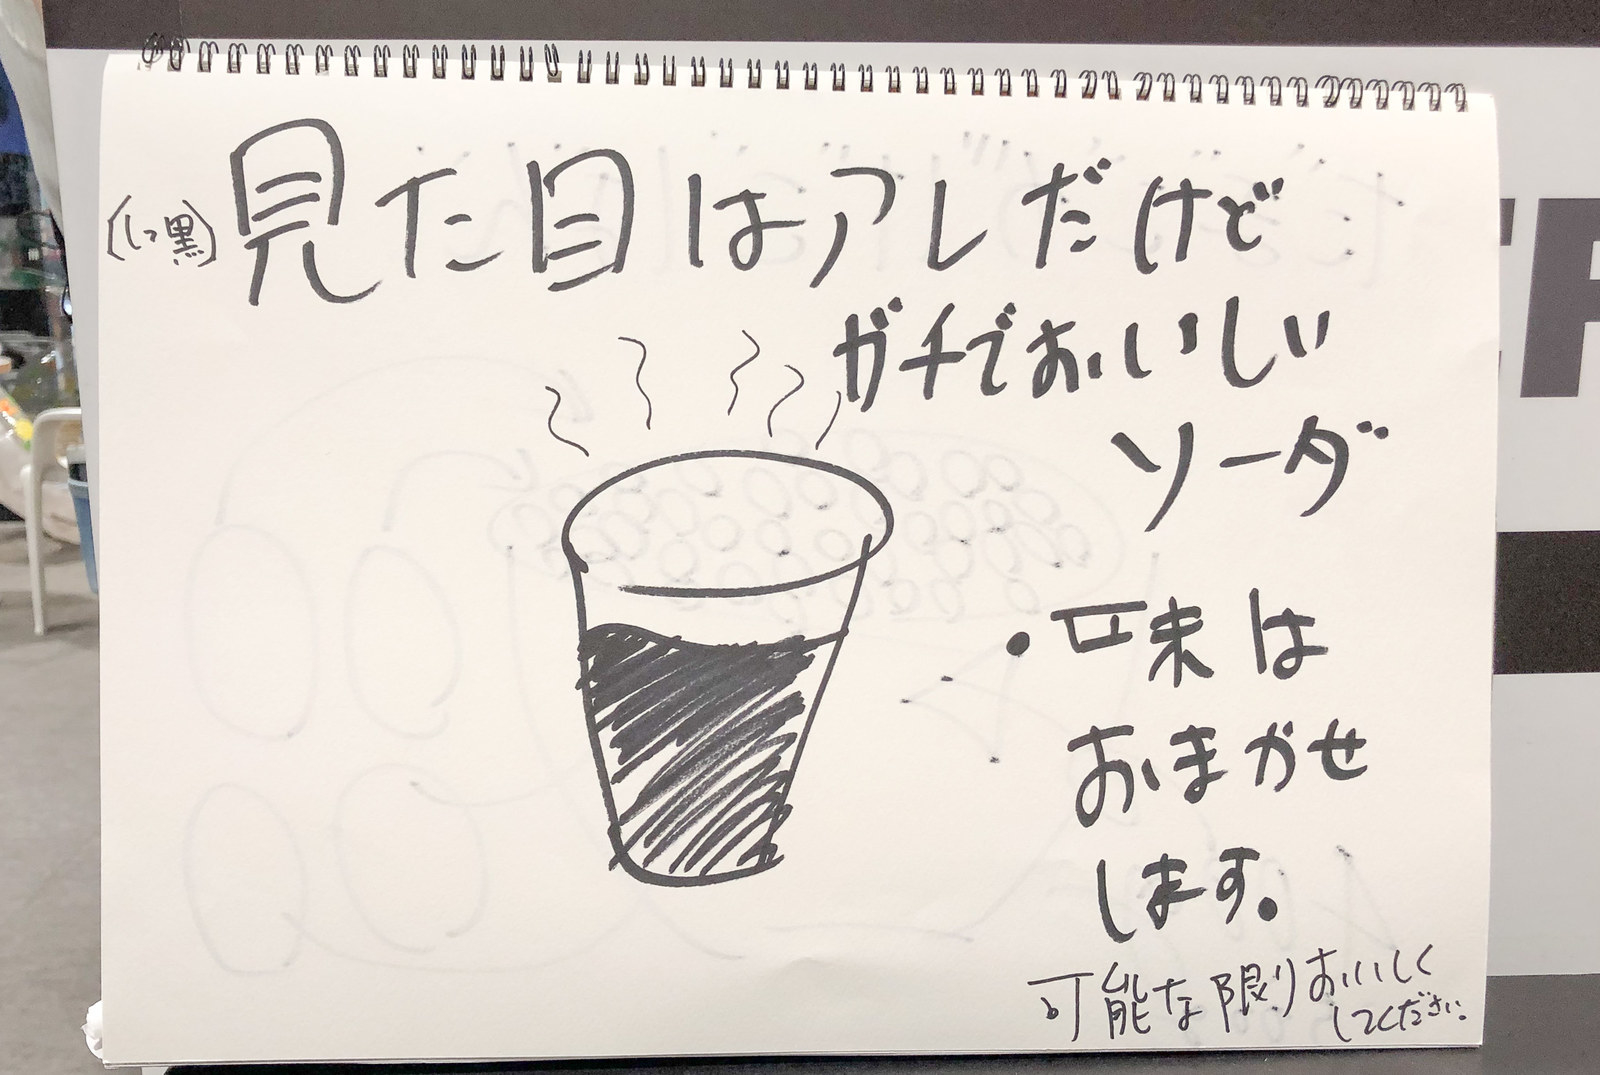 (しっ黒)
見た目はアレだけど
ガチでおいしい
ソーダ
・味は
おまかせ
します。
可能な限りおいしく
してください。